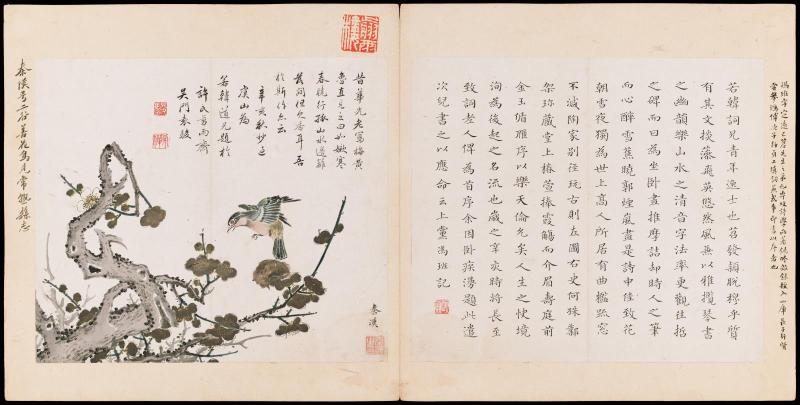 若韓詞兄青年逸士也苕發穎脫穆乎質
有其文掞藻飛英悠然風無以雅攬琴書
之幽韻樂山水之清音字法率更觀往拓
之碑而日為坐卧畫推摩詰却時人之筆
而心醉雪蕉曉郭煙嵐盡是詩中佳致花
朝雪夜獨為世上高人所居有曲檻疏窓
不減陶家別徑玩古則左圖右史何殊鄴
架珎藏堂上椿萱捧霞觴而介眉壽庭前
金玉偹雁序以樂天倫允矣人生之快境
洵為後起之名流也歲之時將長至
致詞老人俾為首序余因卧疾漫題此遣
次兒書之以應命云上黨馮班記
昔華光老寫梅黃
魯直見之曰如嫩寒
春曉行孤山水邊籬
落間但欠香耳吾
於斯作亦云
辛亥秋杪過
虞山為
若韓道兄題於
許氏舊雨齋
吳門袁駿
秦漢
秦漢号二谷善花鳥見常熟縣志